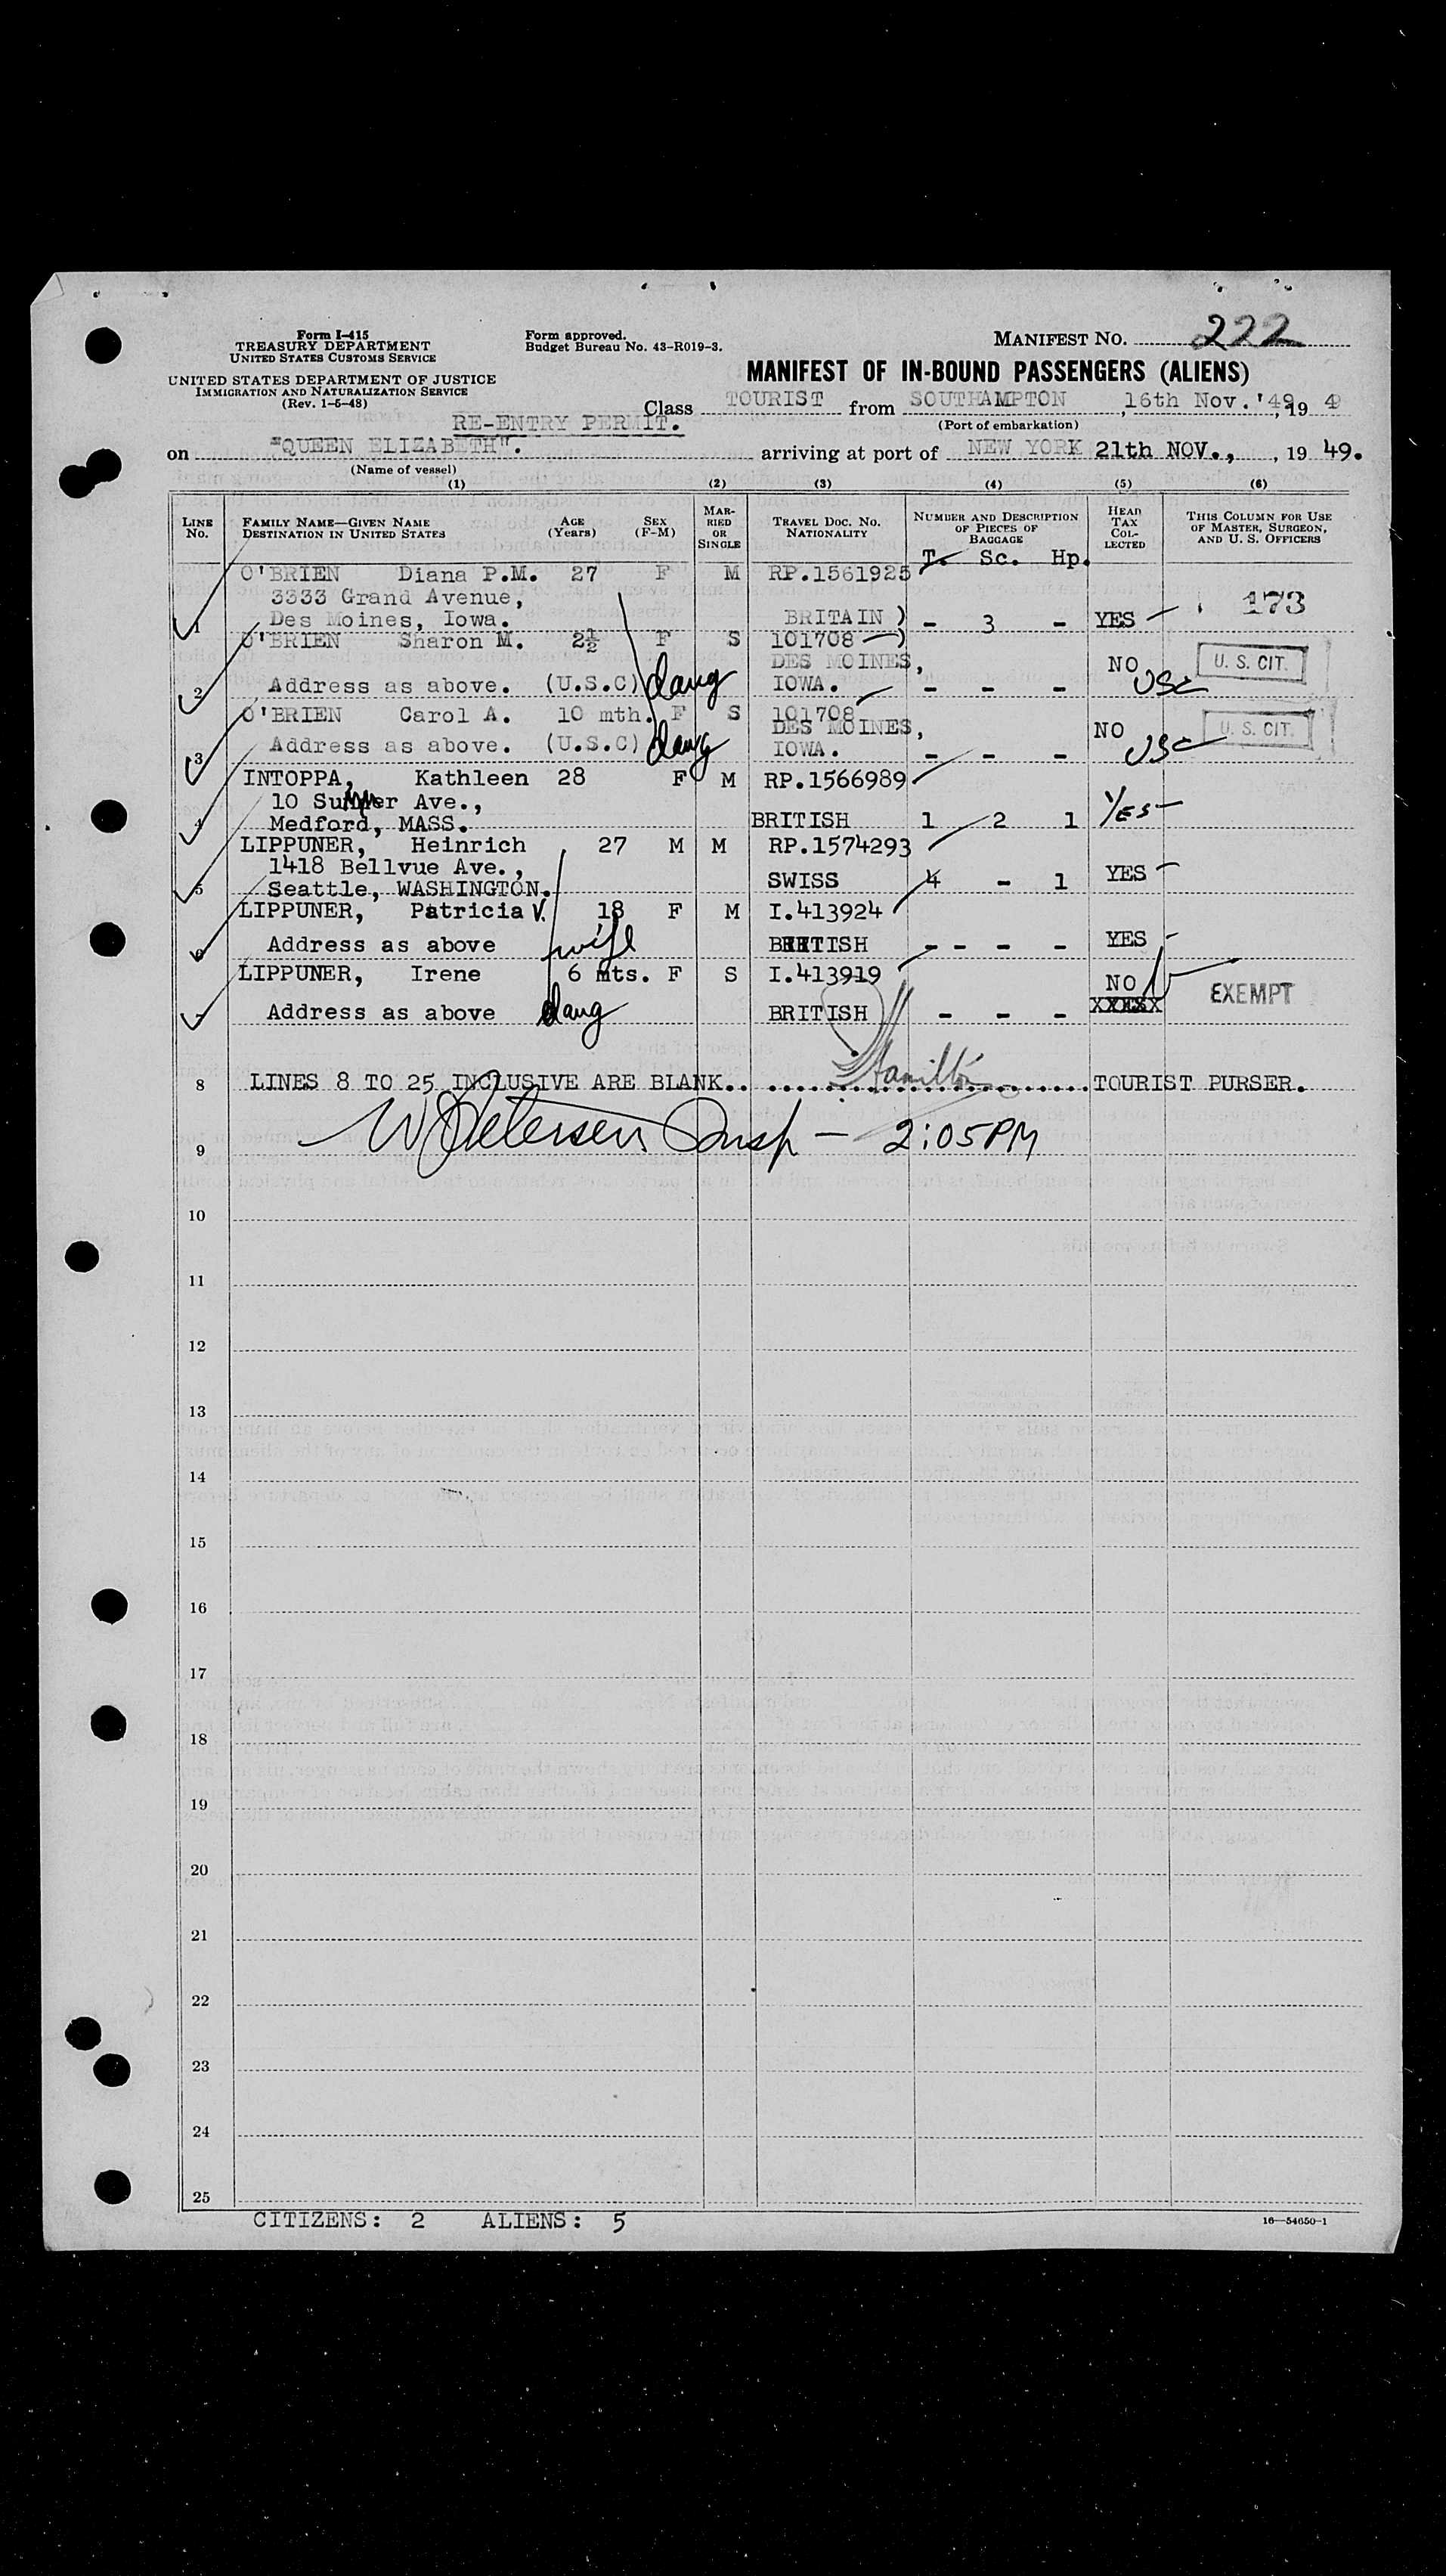 Form I-415
TREASURY DEPARTMENT
UNITED STATES CUSTOMS SERVICE
UNITED STATES DEPARTMENT OF JUSTICE
IMMIGRATION AND NATURALIZATION SERVICE
(Rev. 1-5-48)
Form approved.
Budget Bureau No. 43-R019-3.
MANIFEST NO. 222
MANIFEST OF IN-BOUND PASSENGERS (ALIENS)
RE-ENTRY PERMIT. Class TOURIST from SOUTHAMPTON, 16th Nov.'49, 19 4
(Port of embarkation)
on "QUEEN ELIZABETH". arriving at port of NEW YORK 21th NOV., , 19 49.
(Name of vessel)
(1) (2) (3) (4) (5) (6)
LINE No. FAMILY NAME—GIVEN NAME DESTINATION IN UNITED STATES AGE (Years) SEX (F-M) MARRIED OR SINGLE TRAVEL DOC. NO. NATIONALITY NUMBER AND DESCRIPTION OF PIECES OF BAGGAGE HEAD TAX COLLECTED THIS COLUMN FOR USE OF MASTER, SURGEON, AND U. S. OFFICERS
T. Sc. Hp.
O'BRIEN Diana P.M. 27 F M RP.1561925
3333 Grand Avenue,
1 Des Moines, Iowa. BRITAIN ) - 3 - YES - 173
O'BRIEN Sharon M. 2½ F S 101708 )
DES MOINES, NO U. S. CIT.
2 Address as above. (U.S.C) daug IOWA. - - - USC
O'BRIEN Carol A. 10 mth. F S 101708
DES MOINES, NO U. S. CIT.
3 Address as above. (U.S.C) daug IOWA. - - - USC
INTOPPA, Kathleen 28 F M RP.1566989
10 Ave.,
4 Medford, MASS. BRITISH 1 2 1 YES -
LIPPUNER, Heinrich 27 M M RP.1574293
1418 Bellvue Ave.,
5 Seattle, WASHINGTON. SWISS 4 - 1 YES -
LIPPUNER, Patricia V. 18 F M I.413924
6 Address as above wife BRITISH - - - - YES -
LIPPUNER, Irene 6 mts. F S I.413919
NO
7 Address as above daug BRITISH - - - XXYESX EXEMPT
8 LINES 8 TO 25 INCLUSIVE ARE BLANK. Hamilton TOURIST PURSER.
9 W Petersen Insp - 2:05PM
10
11
12
13
14
15
16
17
18
19
20
21
22
23
24
25
CITIZENS: 2 ALIENS: 5
16—54650-1